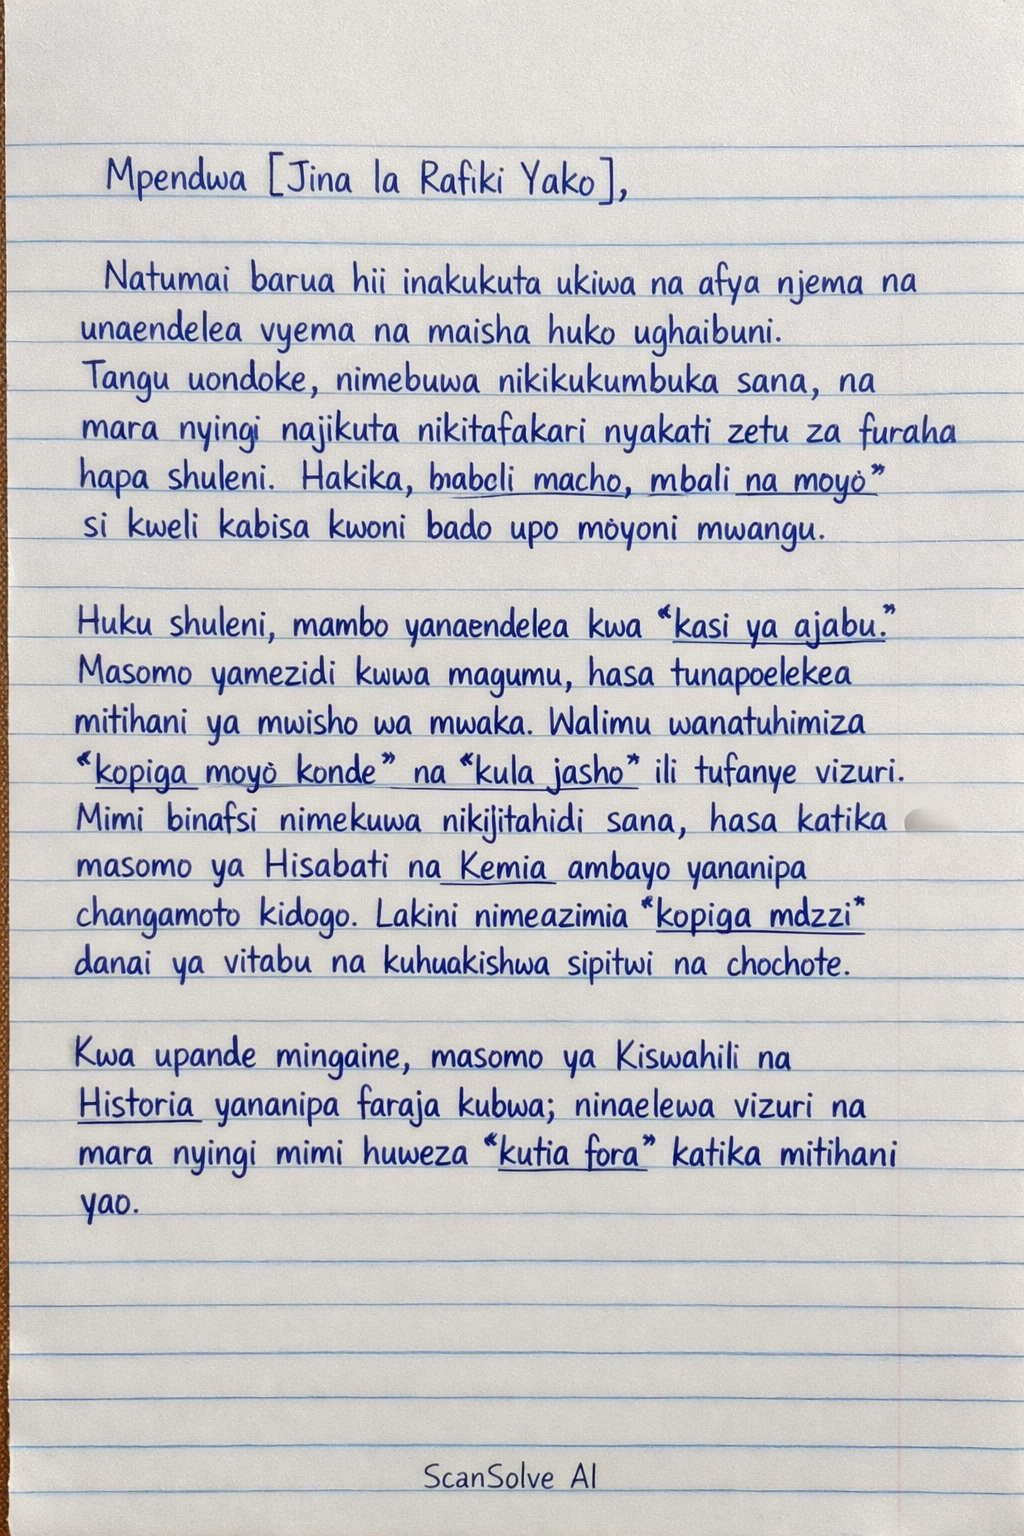 Mpendwa [Jina la Rafiki Yako],
Natumai barua hii inakukuta ukiwa na afya njema na
unaendelea vyema na maisha huko ughaibuni.
Tangu uondoke, nimebuwa nikikukumbuka sana, na
mara nyingi najikuta nikitafakari nyakati zetu za furaha
hapa shuleni. Hakika, macho, mbali na moyo”
si kweli kabisa kwoni bado upo moyoni mwangu.
Huku shuleni, mambo yanaendelea kwa “kasi ya ajabu.”
Masomo yamezidi kuwa magumu, hasa tunapoelekea
mitihani ya mwisho wa mwaka. Walimu wanatuhimiza
“kopiga moyo konde” na “kula jasho” ili tufanye vizuri.
Mimi binafsi nimekuwa nikijitahidi sana, hasa katika
masomo ya Hisabati na Kemia ambayo yananipa
changamoto kidogo. Lakini nimeazimia “kopiga mdzzi”
danai ya vitabu na kuhuakishwa sipitwi na chochote.
Kwa upande mingaine, masomo ya Kiswahili na
Historia yananipa faraja kubwa; ninaelewa vizuri na
mara nyingi mimi huweza “kutia fora” katika mitihani
yao.
ScanSolve AI